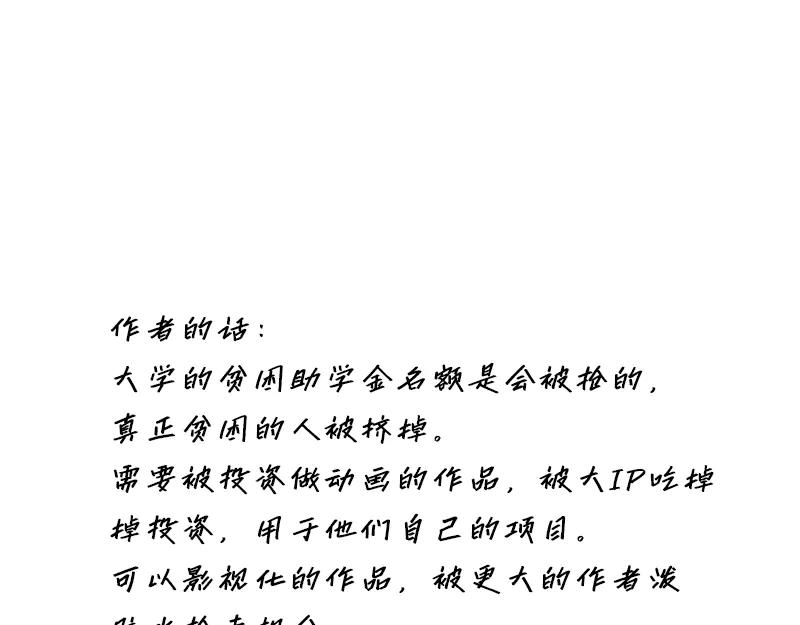 作者的话：
大学的贫困助学金名额是会被抢的，
真正贫困的人被挤掉。
需要被投资做动画的作品，被大IP吃掉
掉投资，用于他们自己的项目。
可以影视化的作品，被更大的作者泼